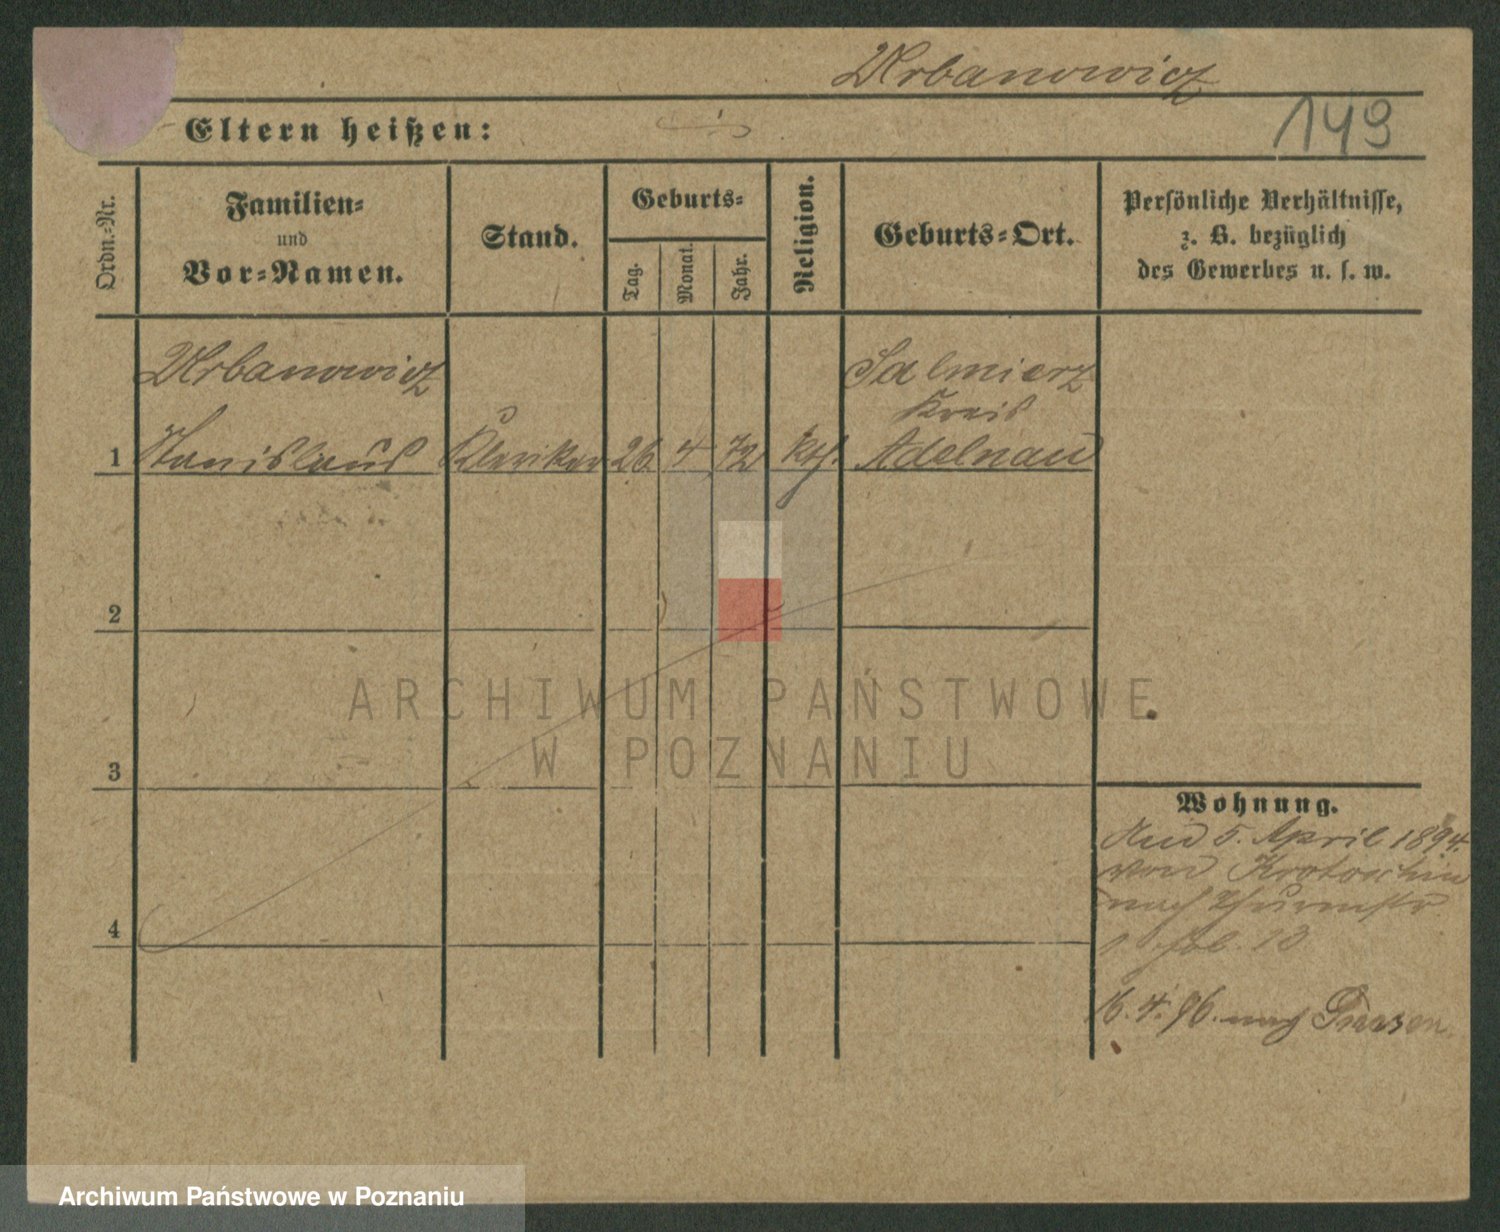 Urbanowicz
149
Eltern heißen:
Ordn.-Nr.
Familien-
und
Vor-Namen.
Stand.
Geburts-
Tag.
Monat.
Jahr.
Religion.
Geburts-Ort.
Persönliche Verhältnisse,
z. B. bezüglich
des Gewerbes u. s. w.
Urbanowicz
Sulmierz
Kreis
1 Stanislaus Kleriker 26 4 72 kth. Adelnau
2
ARCHIWUM PAŃSTWOWE
W POZNANIU
3
Wohnung.
5. April 1894.
von Krotoschin
nach Thurmstr.
13
4
16. 4. 96. nach Posen.
Archiwum Państwowe w Poznaniu